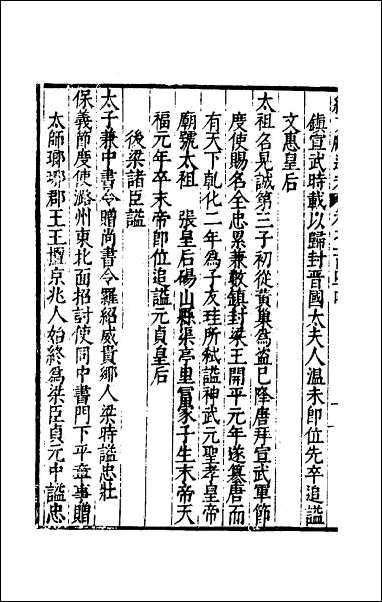 鎮宣武時載以歸封晉國大夫人温未卽位先卒追謚
文惠皇后
太祖名晃誠第三子初從黄巢為盗已降唐拜宣武軍節
度使賜名全忠累兼數鎮封梁王開平元年遂簒唐而
有天下乹化二年為子友珪所弑謚神武元聖孝皇帝
廟號太祖　張皇后碭山縣渠亭里富家子生末帝天
福元年卒末帝卽位追謚元貞皇后
後梁諸臣謚
太子兼中書令贈尚書令羅紹威貴鄉人梁時謚忠壯
保義節度使潞州東北面招討使同中書門下平章事贈
太師瑯琊郡王王檀京兆人始終為梁臣貞元中謚忠